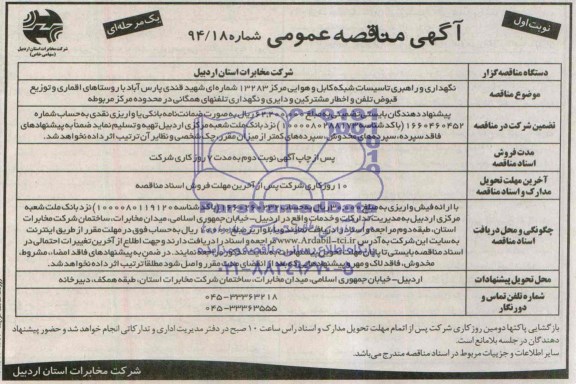 نوبت اول
آگهی مناقصه عمومی شماره ۹۴/۱۸
یک مرحله‌ای
شرکت مخابرات استان اردبیل
(سهامی خاص)
دستگاه مناقصه گزار
شرکت مخابرات استان اردبیل
موضوع مناقصه
نگهداری و راهبری تاسیسات شبکه کابل و هوایی مرکز ۱۳۲۸۳ شماره‌ای شهید قندی پارس آباد با روستاهای اقماری و توزیع
قبوض تلفن و اخطار مشترکین و دایری و نگهداری تلفنهای همگانی در محدوده مرکز مربوطه
تضمین شرکت در مناقصه
پیشنهاد دهندگان بایستی تضمینی به مبلغ ریال به صورت ضمانت نامه بانکی یا واریزی نقدی به حساب شماره
نزد بانک ملت شعبه مرکزی اردبیل تهیه و تسلیم نماید ضمناً به پیشنهادهای
فاقد سپرده، سپرده‌های مخدوش، سپرده‌های کمتر از میزان مقرر، چک شخصی و نظایر آن ترتیب اثر داده نخواهد شد.
مدت فروش
اسناد مناقصه
پس از چاپ آگهی نوبت دوم به مدت ۷ روز کاری شرکت
آخرین مهلت تحویل
مدارک و اسناد مناقصه
۱۰ روز کاری شرکت پس از آخرین مهلت فروش اسناد مناقصه
چگونگی و محل دریافت
اسناد مناقصه
با ارائه فیش واریزی به مبلغ ریال به حساب نزد بانک ملت شعبه
مرکزی اردبیل به مدیریت تدارکات و خدمات واقع در اردبیل - خیابان جمهوری اسلامی، میدان مخابرات، ساختمان شرکت مخابرات
استان، طبقه دوم مراجعه و اسناد را دریافت نمایند و یا با واریز مبلغ ریال به حساب فوق در مهلت مقرر از طریق اینترنت
به سایت این شرکت به آدرس www.Ardabil-tci.ir مراجعه و اسناد را دریافت دارند و جهت اطلاع از آخرین تغییرات احتمالی در
اسناد مناقصه بایستی تا پایان مهلت نمایند. در ضمن به پیشنهادهای فاقد امضاء، مشروط،
مخدوش، فاقد لاک و مهر و پیشنهادهایی که بعد از انقضاء مدت مقرر واصل شود مطلقاً ترتیب اثر داده نخواهد شد.
محل تحویل پیشنهادات
اردبیل - خیابان جمهوری اسلامی، میدان مخابرات، ساختمان شرکت مخابرات استان، طبقه همکف، دبیرخانه
شماره تلفن تماس و
دورنگار
۰۴۵-۳۳۳۶۳۲۱۸
۰۴۵-۳۳۳۶۳۵۵۵
بازگشایی پاکتها دومین روز کاری شرکت پس از اتمام مهلت تحویل مدارک و اسناد راس ساعت ۱۰ صبح در دفتر مدیریت اداری و تدارکاتی انجام خواهد شد و حضور پیشنهاد
دهندگان در جلسه بلامانع است.
سایر اطلاعات و جزییات مربوط در اسناد مناقصه مندرج می‌باشد.
شرکت مخابرات استان اردبیل
ParsNamadData
۰۲۱-۸۸۳۴۹۶۷۰-۵